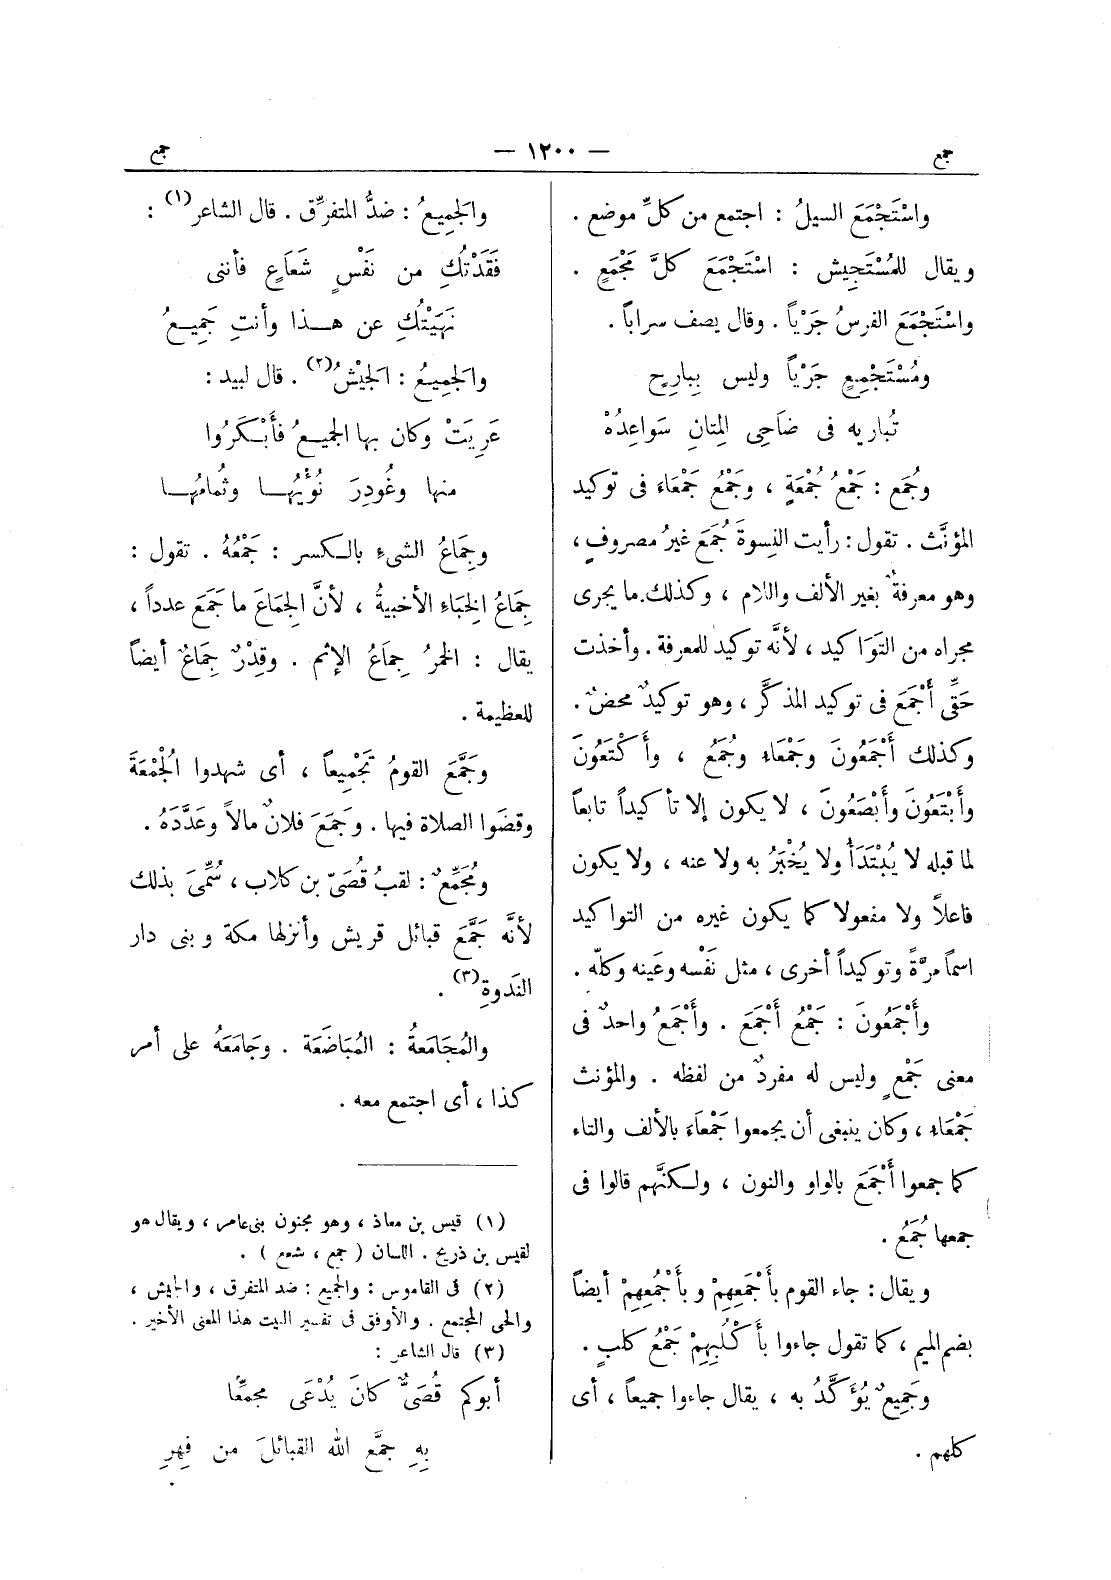 جمع
— ١٢٠٠ —
جمع
واسْتَجْمَعَ السيلُ : اجتمع من كلِّ موضع .
ويقال للمُسْتَجِيش : اسْتَجْمَعَ كلَّ مَجْمَعٍ .
واسْتَجْمَعَ الفرسُ جَرْياً . وقال يصف سراباً .
ومُسْتَجْمِعٍ جَرْياً وليس بِبارِحٍ
تُباريه فى ضَاحِى المِتانِ سَواعِدُهْ
وجُمَع : جَمْعُ جُمْعَةٍ ، وجَمْعُ جَمْعَاءَ فى توكيد
المؤنَّث . تقول : رأيت النِسوةَ جُمَعَ غيرُ مصروفٍ ،
وهو معرفةٌ بغير الألف واللام ، وكذلك ما يجرى
مجراه من التَوَاكيد ، لأنَّه توكيد للمعرفة . وأخذت
حَقِّى أَجْمَعَ فى توكيد المذكَّر ، وهو توكيدٌ محضٌ .
وكذلك أَجْمَعُونَ وجَمْعَاء وجُمَعُ ، وأَكْتَعُونَ
وأَبْتَعُونَ وأَبْصَعُونَ ، لا يكون إلا تأكيداً تابعاً
لما قبله لا يُبْتَدَأُ ولا يُخْبَرُ به ولا عنه ، ولا يكون
فاعلاً ولا مفعولا كما يكون غيره من التواكيد
اسماً مرَّةً وتوكيداً أخرى ، مثل نَفْسه وعَينه وكلّه .
وأَجْمَعُونَ : جَمْعُ أَجْمَعَ . وأَجْمَعُ واحدٌ فى
معنى جَمْعٍ وليس له مفردٌ من لفظه . والمؤنث
جَمْعَاء ، وكان ينبغى أن يجمعوا جَمْعَاءَ بالألف والتاء
كما جمعوا أَجْمَعَ بالواو والنون ، ولكنَّهم قالوا فى
جمعها جُمَعُ .
ويقال : جاء القوم بأَجْمَعِهِمْ وبأَجْمُعِهِمْ أيضاً
بضم الميم ، كما تقول جاءوا بأَكْلُبِهِمْ جَمْعُ كلبٍ .
وجَمِيعٌ يُؤَكَّدُ به ، يقال جاءوا جميعاً ، أى
كلهم .
والجَمِيعُ : ضدُّ المتفرِّق . قال الشاعر(١) :
فَقَدْتُكِ من نَفْسٍ شَعَاعٍ فأننى
نَهَيْتُكِ عن هذا وأنتِ جَمِيعُ
والجَمِيعُ : الجَيْشُ(٢) . قال لبيد :
عَرِيَتْ وكان بها الجميعُ فأَبْكَرُوا
منها وغُودِرَ نُؤْيُها وثُمامُها
وجِمَاعُ الشىءِ بالكسر : جَمْعُهُ . تقول :
جِمَاعُ الخِبَاءِ الأخبيةُ ، لأنَّ الجِمَاعَ ما جَمَعَ عدداً ،
يقال : الخمرُ جِمَاعُ الإثم . وقِدْرٌ جِمَاعٌ أيضاً
للعظيمة .
وجَمَّعَ القومُ تَجْمِيعاً ، أى شهدوا الجُمْعَةَ
وقضَوا الصلاة فيها . وجَمَعَ فلانٌ مالاً وعَدَّدَهُ .
ومُجَمِّعٌ : لقبُ قُصَىّ بن كلاب ، سُمِّىَ بذلك
لأنَّه جَمَّعَ قبائل قريش وأنزلها مكة وبنى دار
النَدوةِ(٣) .
والمُجَامَعَةُ : المُبَاضَعَة . وجَامَعَهُ على أمر
كذا ، أى اجتمع معه .
(١) قيس بن معاذ ، وهو مجنون بنى عامر ، ويقال هو
لقيس بن ذريح . اللسان ( جمع ، شعع ) .
(٢) فى القاموس : والجميع : ضد المتفرق ، والجيش ،
والحى المجتمع . والأوفق فى تفسير البيت هذا المعنى الأخير .
(٣) قال الشاعر :
أبوكم قُصَىٌّ كانَ يُدْعَى مجمعًّا
بِهِ جمَّع الله القبائلَ من فِهرِ